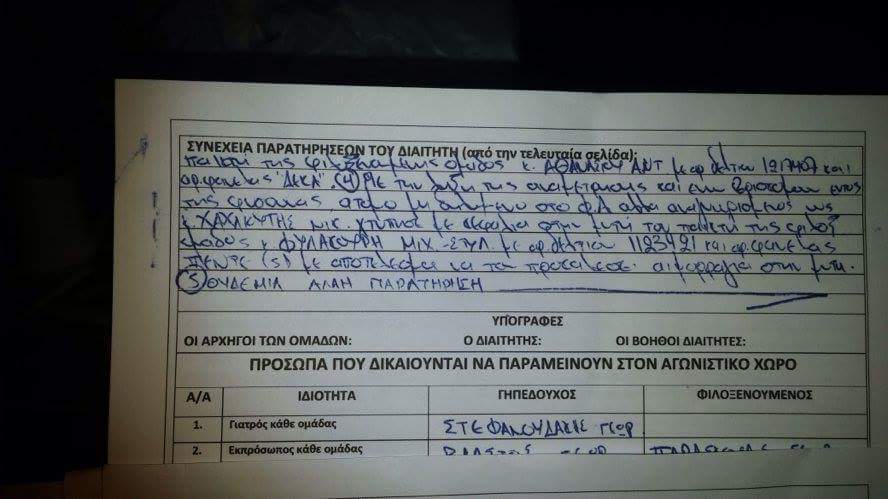 ΣΥΝΕΧΕΙΑ ΠΑΡΑΤΗΡΗΣΕΩΝ ΤΟΥ ΔΙΑΙΤΗΤΗ (από την τελευταία σελίδα):
παίκτη της φιλοξεν/μενης ομάδος κ. ΑΘΑΝΑΣΙΟΥ ΑΝΤ με αρ δελτίου και
αρ.φανέλας "ΔΕΚΑ". (4) ΜΕ την λήξη της αναμέτρησης και ενώ βρισκόμουν εντός
της άτομο μη στο Φ.Α αλλά αναγνωρισμένος ως
κ ΧΑΧΛΙΟΥΤΗΣ ΝΙΚ. χτύπησε με κεφαλιά στην μύτη τον παίκτη της φιλοξ
ομάδος κ ΦΥΛΑΚΟΥΡΗ ΜΙΧ-ΣΤΥΛ με αρ.δελτίου 1123421 και αρ.φανέλας
ΠΕΝΤΕ (5) με αποτέλεσμα να του προκαλέσει αιμορραγία στην μύτη.
(5) ΟΥΔΕΜΙΑ ΑΛΛΗ ΠΑΡΑΤΗΡΗΣΗ
ΥΠΟΓΡΑΦΕΣ
ΟΙ ΑΡΧΗΓΟΙ ΤΩΝ ΟΜΑΔΩΝ: Ο ΔΙΑΙΤΗΤΗΣ: ΟΙ ΒΟΗΘΟΙ ΔΙΑΙΤΗΤΕΣ:
ΠΡΟΣΩΠΑ ΠΟΥ ΔΙΚΑΙΟΥΝΤΑΙ ΝΑ ΠΑΡΑΜΕΙΝΟΥΝ ΣΤΟΝ ΑΓΩΝΙΣΤΙΚΟ ΧΩΡΟ
Α/Α ΙΔΙΟΤΗΤΑ ΓΗΠΕΔΟΥΧΟΣ ΦΙΛΟΞΕΝΟΥΜΕΝΟΣ
1. Γιατρός κάθε ομάδας ΣΤΕΦΑΝΟΥΔΑΚΗΣ ΓΕΩΡ
2. Εκπρόσωπος κάθε ομάδας